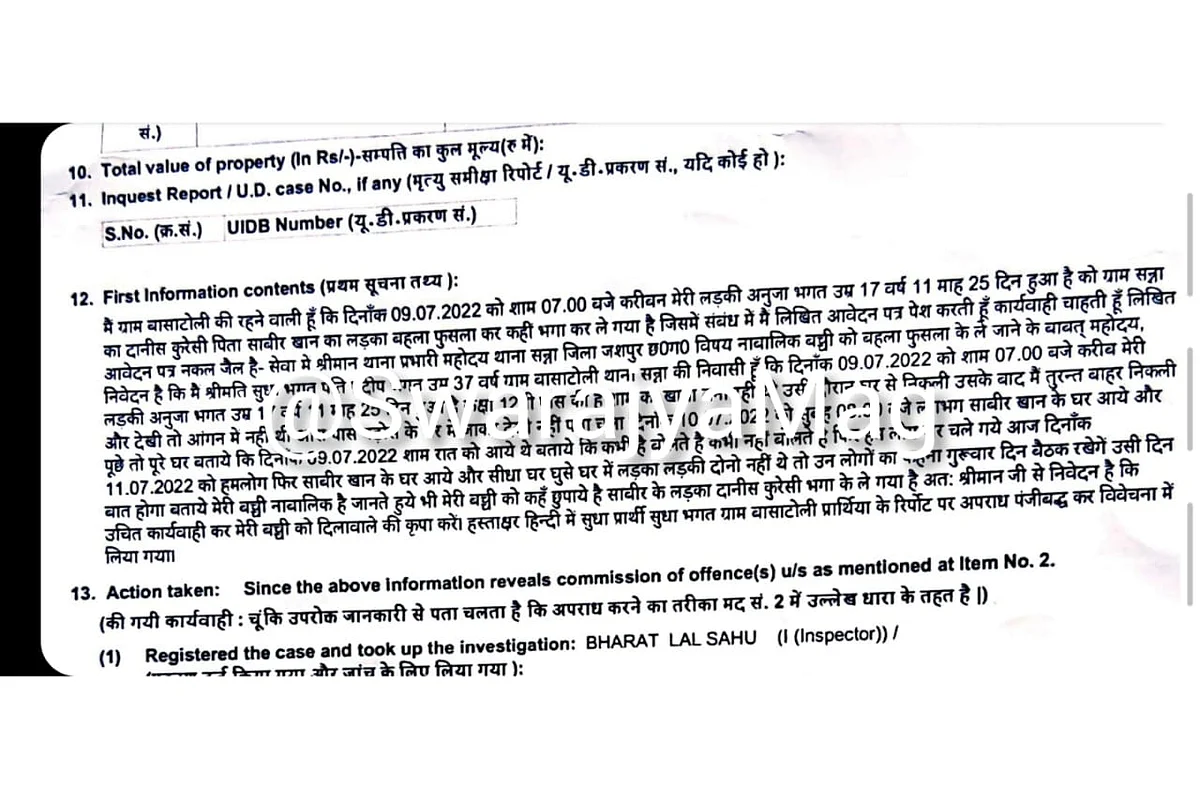 सं.)
10. Total value of property (In Rs/-)-सम्पत्ति का कुल मूल्य(रु में):
11. Inquest Report / U.D. case No., if any (मृत्यु समीक्षा रिपोर्ट / यू.डी.प्रकरण सं., यदि कोई हो ):
S.No. (क्र.सं.) UIDB Number (यू.डी.प्रकरण सं.)
12. First Information contents (प्रथम सूचना तथ्य ):
मैं ग्राम बासाटोली की रहने वाली हूँ कि दिनाँक 09.07.2022 को शाम 07.00 बजे करीवन मेरी लड़की अनुजा भगत उम्र 17 वर्ष 11 माह 25 दिन हुआ है को ग्राम सन्ना
का दानीस कुरेसी पिता साबीर खान का लड़का बहला फुसला कर कहीं भगा कर ले गया है जिसमें संबंध में मैं लिखित आवेदन पत्र पेश करती हूँ कार्यवाही चाहती हूँ लिखित
आवेदन पत्र नकल जैल है- सेवा मे श्रीमान थाना प्रभारी महोदय थाना सन्ना जिला जशपुर छ0ग0 विषय नाबालिक बच्ची को बहला फुसला के ले जाने के बाबत् महोदय,
निवेदन है कि मै श्रीमति भगत उम्र 37 वर्ष ग्राम बासाटोली थाना सन्ना की निवासी हूँ कि दिनाँक 09.07.2022 को शाम 07.00 बजे करीब मेरी
लड़की अनुजा भगत उम्र माह 25 दिन से निकली उसके बाद मैं तुरन्त बाहर निकली
और देखी तो आंगन में नहीं लगभग साबीर खान के घर आये और
पूछे तो पूरे घर बताये कि 09.07.2022 शाम रात को आये थे बताये कि कभी नहीं बोलते चले गये आज दिनाँक
11.07.2022 को हमलोग फिर साबीर खान के घर आये और सीधा घर घुसे घर में लड़का लड़की दोनो नहीं थे तो उन लोगों का कहना गुरूवार दिन बैठक रखेगें उसी दिन
बात होगा बताये मेरी बच्ची नाबालिक है जानते हुये भी मेरी बच्ची को कहँ छुपाये है साबीर के लड़का दानीस कुरेसी भगा के ले गया है अतः श्रीमान जी से निवेदन है कि
उचित कार्यवाही कर मेरी बच्ची को दिलावाले की कृपा करें। हस्ताक्षर हिन्दी में सुधा प्रार्थी सुधा भगत ग्राम बासाटोली प्रार्थिया के रिर्पोट पर अपराध पंजीबद्ध कर विवेचना में
लिया गया।
@SwarajyaMag
13. Action taken: Since the above information reveals commission of offence(s) u/s as mentioned at Item No. 2.
(की गयी कार्यवाही : चूंकि उपरोक्त जानकारी से पता चलता है कि अपराध करने का तरीका मद सं. 2 में उल्लेख धारा के तहत है।)
(1) Registered the case and took up the investigation: BHARAT LAL SAHU (I (Inspector)) /
और जांच के लिए लिया गया ):